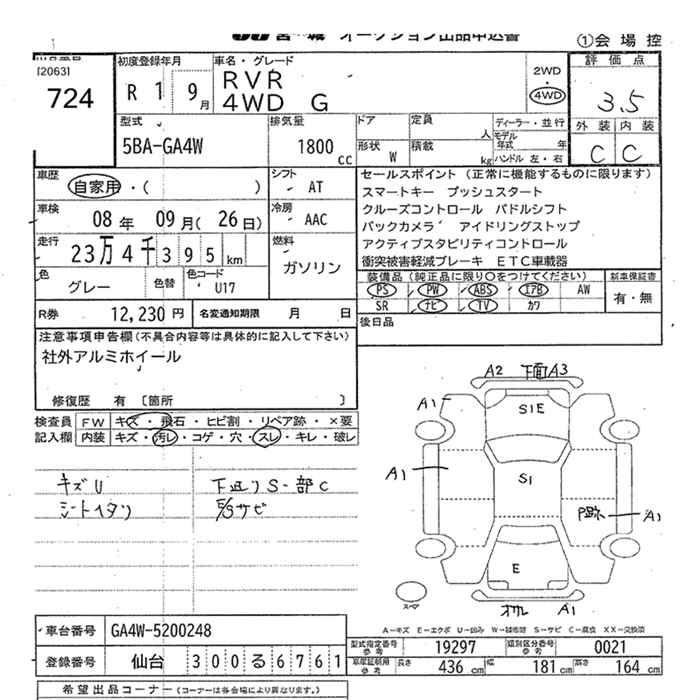 宮城 オークション出品申込書
①会場控
[2063]
724
初度登録年月
R 1 9月
車名・グレード
RVR
4WD G
2WD
・
4WD
評価点
3.5
外装 内装
C C
型式
5BA-GA4W
排気量
1800 cc
ドア
形状 W
定員 人
積載 kg
ディーラー・並行
モデル年式 年
ハンドル 左・右
車歴
自家用・( )
シフト
AT
車検
08年 09月(26日)
冷房
AAC
走行
23万4千395km
燃料
ガソリン
色
グレー
色替
色コード
U17
セールスポイント (正常に機能するものに限ります)
スマートキー プッシュスタート
クルーズコントロール パドルシフト
バックカメラ アイドリングストップ
アクティブスタビリティコントロール
衝突被害軽減ブレーキ ETC車載器
装備品(純正品に限り○をつけてください)
PS PW ABS エアB AW
SR ナビ TV カワ
新車保証書
有・無
R券 12,230円
名変通知期限 月 日
後日品
注意事項申告欄(不具合内容等は具体的に記入して下さい)
社外アルミホイール
修復歴 有 〔箇所 〕
検査員記入欄
FW キズ・飛石・ヒビ割・リペア跡・×要
内装 キズ・汚レ・コゲ・穴・スレ・キレ・破レ
キズU
シートイタリ
下廻りS一部C
サビ
A2 下面A3
A1
S1E
A1
S1
P跡 A1
E
A1
スペア
A-キズ E-エクボ U-凹み W-補修跡 S-サビ C-腐食 XX-交換済
車台番号 GA4W-5200248
登録番号 仙台 300る6761
型式指定番号 参考 19297
類別区分番号 参考 0021
車庫証明用 参考 長さ 436cm 幅 181cm 高さ 164cm
希望出品コーナー(コーナーは各会場により異なります。)